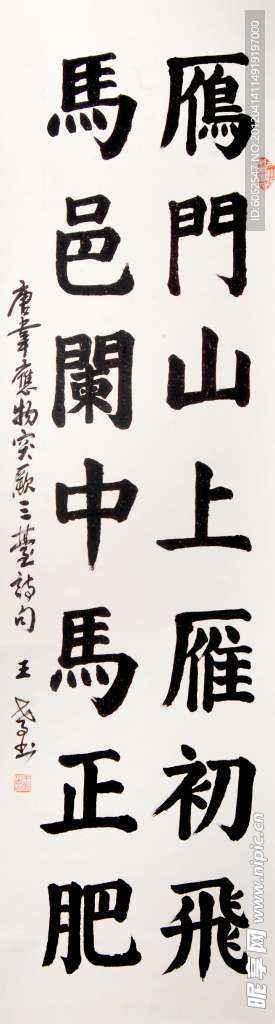 鴈門山上雁初飛
馬邑闌中馬正肥
唐韋應物突厥三薹詩句 王
ID:6062547 NO:20120414114919197000
昵享网 www.nipic.cn